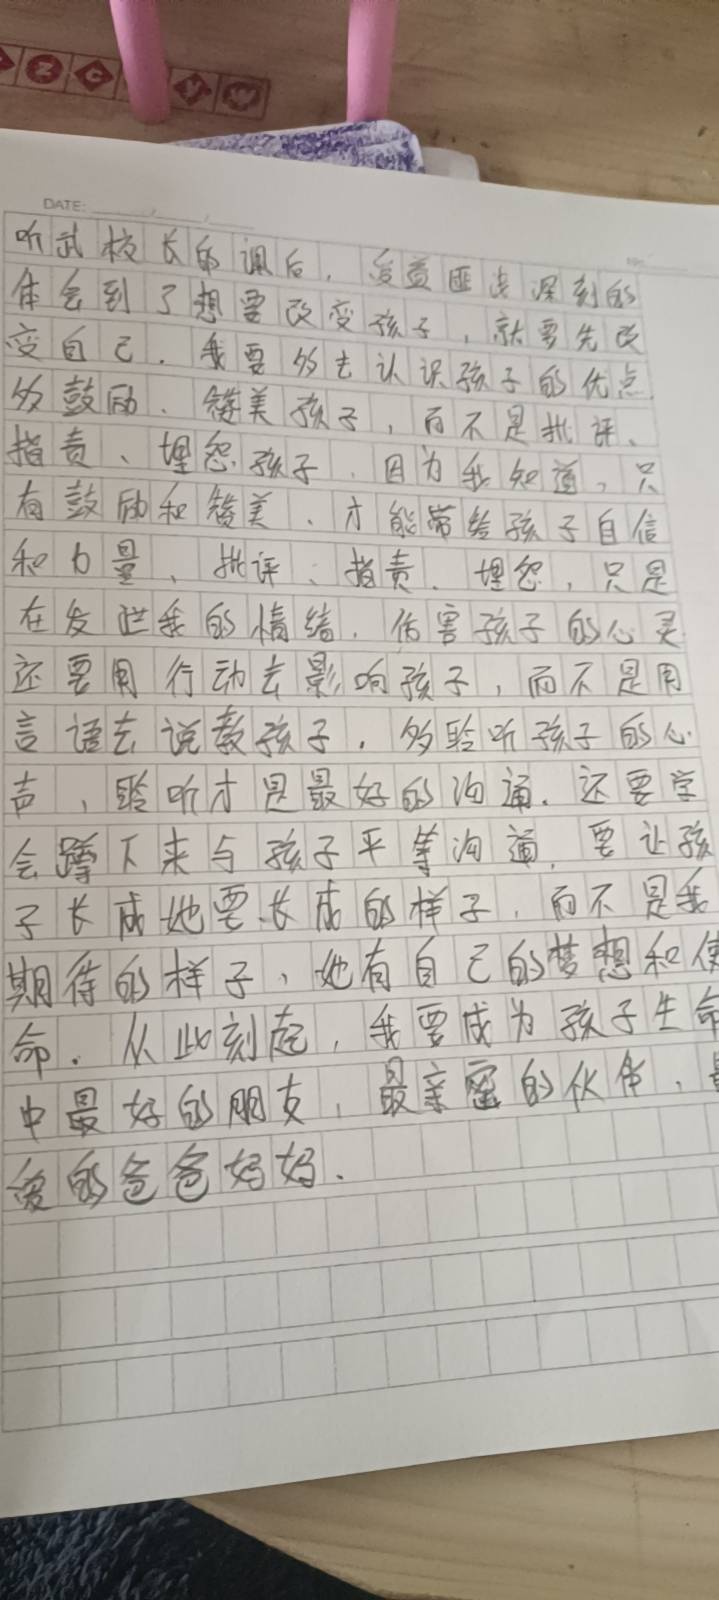 Z G Y W
DATE:
听武校长的课后，受益匪浅深刻的
体会到了想要改变孩子，就要先改
变自己．我要多去认识孩子的优点．
多鼓励、赞美孩子，而不是批评、
指责、埋怨孩子．因为我知道，只
有鼓励和赞美、才能带给孩子自信
和力量、批评、指责．埋怨，只是
在发泄我的情绪．伤害孩子的心灵
还要用行动去影响孩子，而不是用
言语去说教孩子．多聆听孩子的心
声，聆听才是最好的沟通．还要学
会蹲下来与孩子平等沟通．要让孩
子长成她要长成的样子，而不是我
期待的样子、她有自己的梦想和使
命．从此刻起，我要成为孩子生命
中最好的朋友，最亲密的伙伴、
爱的爸爸妈妈．